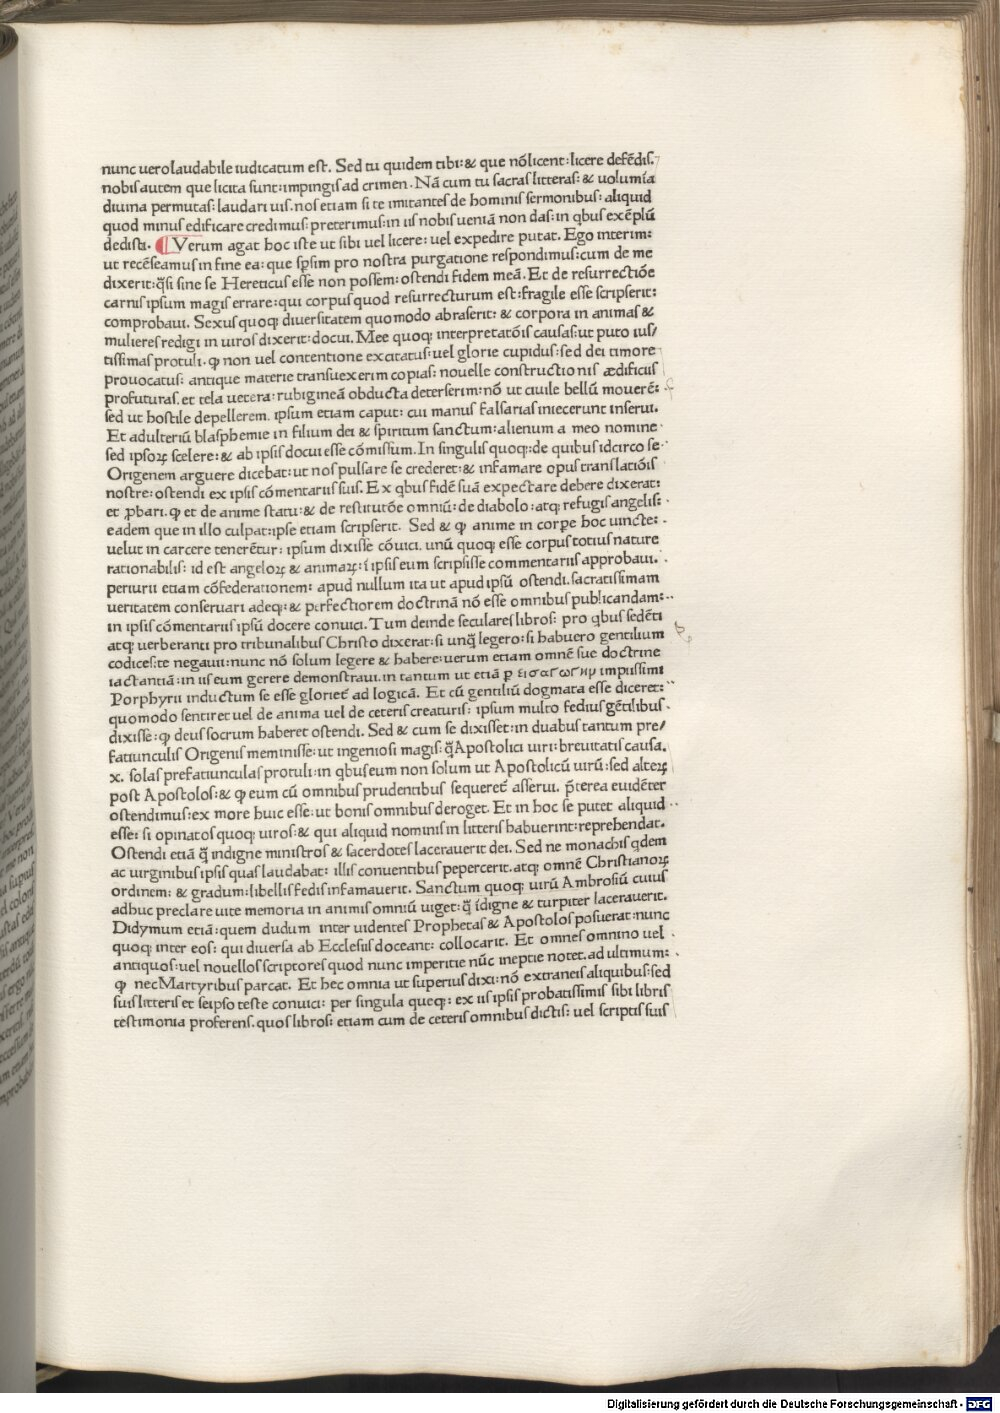 nunc uero laudabile iudicatum est. Sed tu quidem tibi: & que nõ licent: licere defẽdis.
nobis autem que licita sunt: impingis ad crimen. Nã cum tu sacras litteras: & uolumía
diuina permutas: laudari uis. nos etiam si te imitantes de hominis sermonibus: aliquid
quod minus edificare credimus: preterimus: in iis nobis ueniã non das: in qbus exẽplũ
dedisti. ¶ Verum agat hoc iste ut sibi uel licere: uel expedire putat. Ego interim:
ut recẽseamus in fine ea: que spsim pro nostra purgatione respondimus: cum de me
dixerit: q̃si sine se Hereticus esse non possem: ostendi fidem meã. Et de resurrectiõe
carnis ipsum magis errare: qui corpus quod resurrecturum est: fragile esse scripserit:
comprobaui. Sexus quoq; diuersitatem quomodo abraserit: & corpora in animas &
mulieres redigi in uiros dixerit: docui. Mee quoq; interpretatõis causas: ut puto ius/
tissimas protuli. ꝙ non uel contentione excitatus: uel glorie cupidus: sed dei timore
prouocatus: antique materie transuexerim copias: nouelle constructionis ædificiis
profuturas. et tela uetera: rubigineã obducta deterserim: nõ ut ciuile bellũ mouerẽ:
sed ut hostile depellerem. ipsum etiam caput: cui manus falsarias iniecerunt inserui.
Et adulteriũ blasphemie in filium dei & spiritum sanctum: alienum a meo nomine
sed ipsoꝝ scelere: & ab ipsis docui esse cõmissum. In singulis quoq;: de quibus idcirco se
Origenem arguere dicebat: ut nos pulsare se crederet: & infamare opus translatiõis
nostre: ostendi ex ipsis cõmentariis suis. Ex qbus fidẽ suã expectare debere dixerat:
et ꝓbari. ꝙ et de anime statu: & de restitutõe omniũ: de diabolo: atq; refugis angelis:
eadem que in illo culpat: ipse etiam scripserit. Sed & ꝙ anime in corpe hoc uincte:
uelut in carcere tenerẽtur: ipsum dixisse cõuici. unũ quoq; esse corpus totius nature
rationabilis: id est angeloꝝ & animaꝝ: í ipsis eum scripsisse commentariis approbaui.
periurii etiam cõfederationem: apud nullum ita ut apud ipsũ ostendi. sacratissimam
ueritatem conseruari adeq;: & perfectiorem doctrinã nõ esse omnibus publicandam:
in ipsis cõmentariis ipsũ docere conuici. Tum deinde seculares libros: pro qbus sedẽti
atq; uerberanti pro tribunalibus Christo dixerat: si unq̃ legero: si habuero gentilium
codices: te negaui: nunc nõ solum legere & habere: uerum etiam omnẽ sue doctrine
iactantiã: in iis eum gerere demonstraui. in tantum ut etiã ꝑ εισαγωγην impiissimi
Porphyrii inductum se esse glorieť ad logicã. Et cũ gentiliũ dogmata esse diceret:
quomodo sentiret uel de anima uel de ceteris creaturis: ipsum multo fedius gẽtilibus
dixisse: ꝙ deus socrum haberet ostendi. Sed & cum se dixisset: in duabus tantum pre/
fatiunculis Origenis meminisse: ut ingeniosi magis: q̃ Apostolici uiri: breuitatis causa.
x. solas prefatiunculas protuli: in qbus eum non solum ut Apostolicũ uirũ: sed alteꝝ
post Apostolos: & ꝙ eum cũ omnibus prudentibus sequereť asserui. p̃terea euidẽter
ostendimus: ex more huic esse: ut bonis omnibus deroget. Et in hoc se putet aliquid
esse: si opinatos quoq; uiros: & qui aliquid nominis in litteris habuerint: reprehendat.
Ostendi etiã q̃ indigne ministros & sacerdotes lacerauerit dei. Sed ne monachis qdem
ac uirginibus ipsis quas laudabat: illis conuentibus pepercerit. atq; omnẽ Christianoꝝ
ordinem: & gradum: libellis fedis infamauerit. Sanctum quoq; uirũ Ambrosiũ cuius
adhuc preclare uite memoria in animis omniũ uiget: q̃ ídigne & turpiter lacerauerit.
Didymum etiã: quem dudum inter uidentes Prophetas & Apostolos posuerat: nunc
quoq; inter eos: qui diuersa ab Ecclesiis doceant: collocarit. Et omnes omnino uel
antiquos: uel nouellos scriptores quod nunc imperitie nũc ineptie notet. ad ultimum:
ꝙ nec Martyribus parcat. Et hec omnia ut superius dixi: nõ extraneis aliquibus: sed
suis litteris et seipso teste conuici: per singula queq;: ex iis ipsis probatissimis sibi libris
testimonia proferens. quos libros: etiam cum de ceteris omnibus dictis: uel scriptis suis
Digitalisierung gefördert durch die Deutsche Forschungsgemeinschaft - DFG